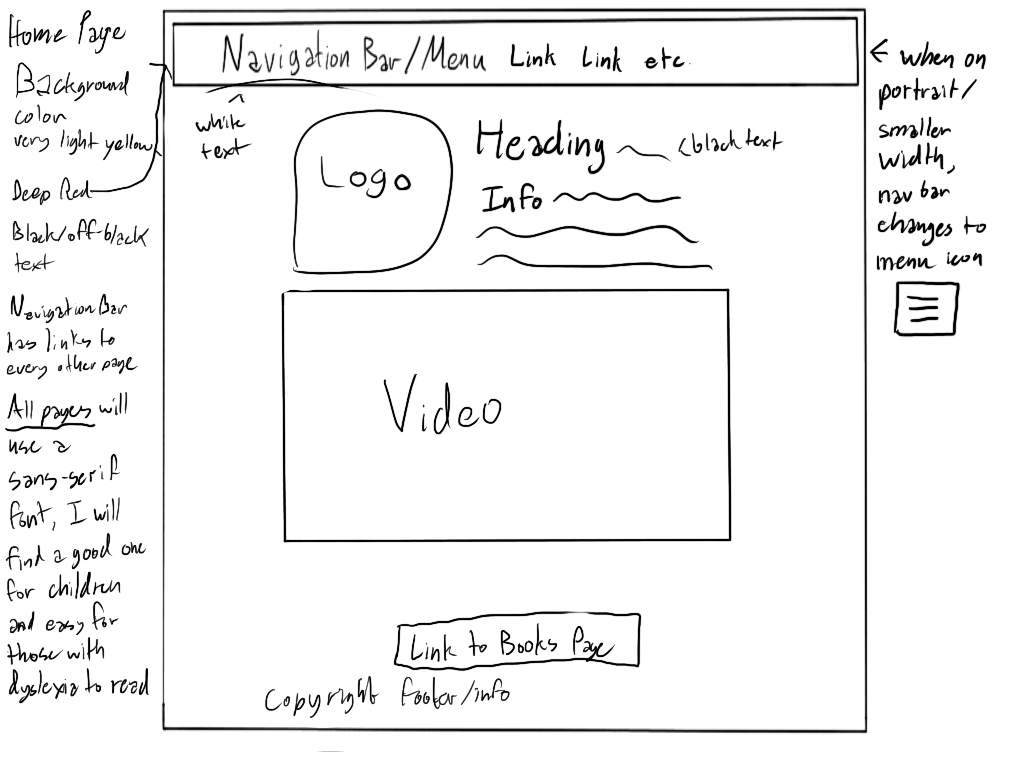 Home Page
Background
color
very light yellow
Deep Red
Black/off-black
text
Navigation Bar
has links to
every other page
All pages will
use a
sans-serif
font, I will
find a good one
for children
and easy for
those with
dyslexia to read
Navigation Bar/Menu Link Link etc.
^
white
text
Logo
Heading
<black text
Info
Video
Link to Books Page
Copyright footer/info
← when on
portrait/
smaller
width,
nav bar
changes to
menu icon